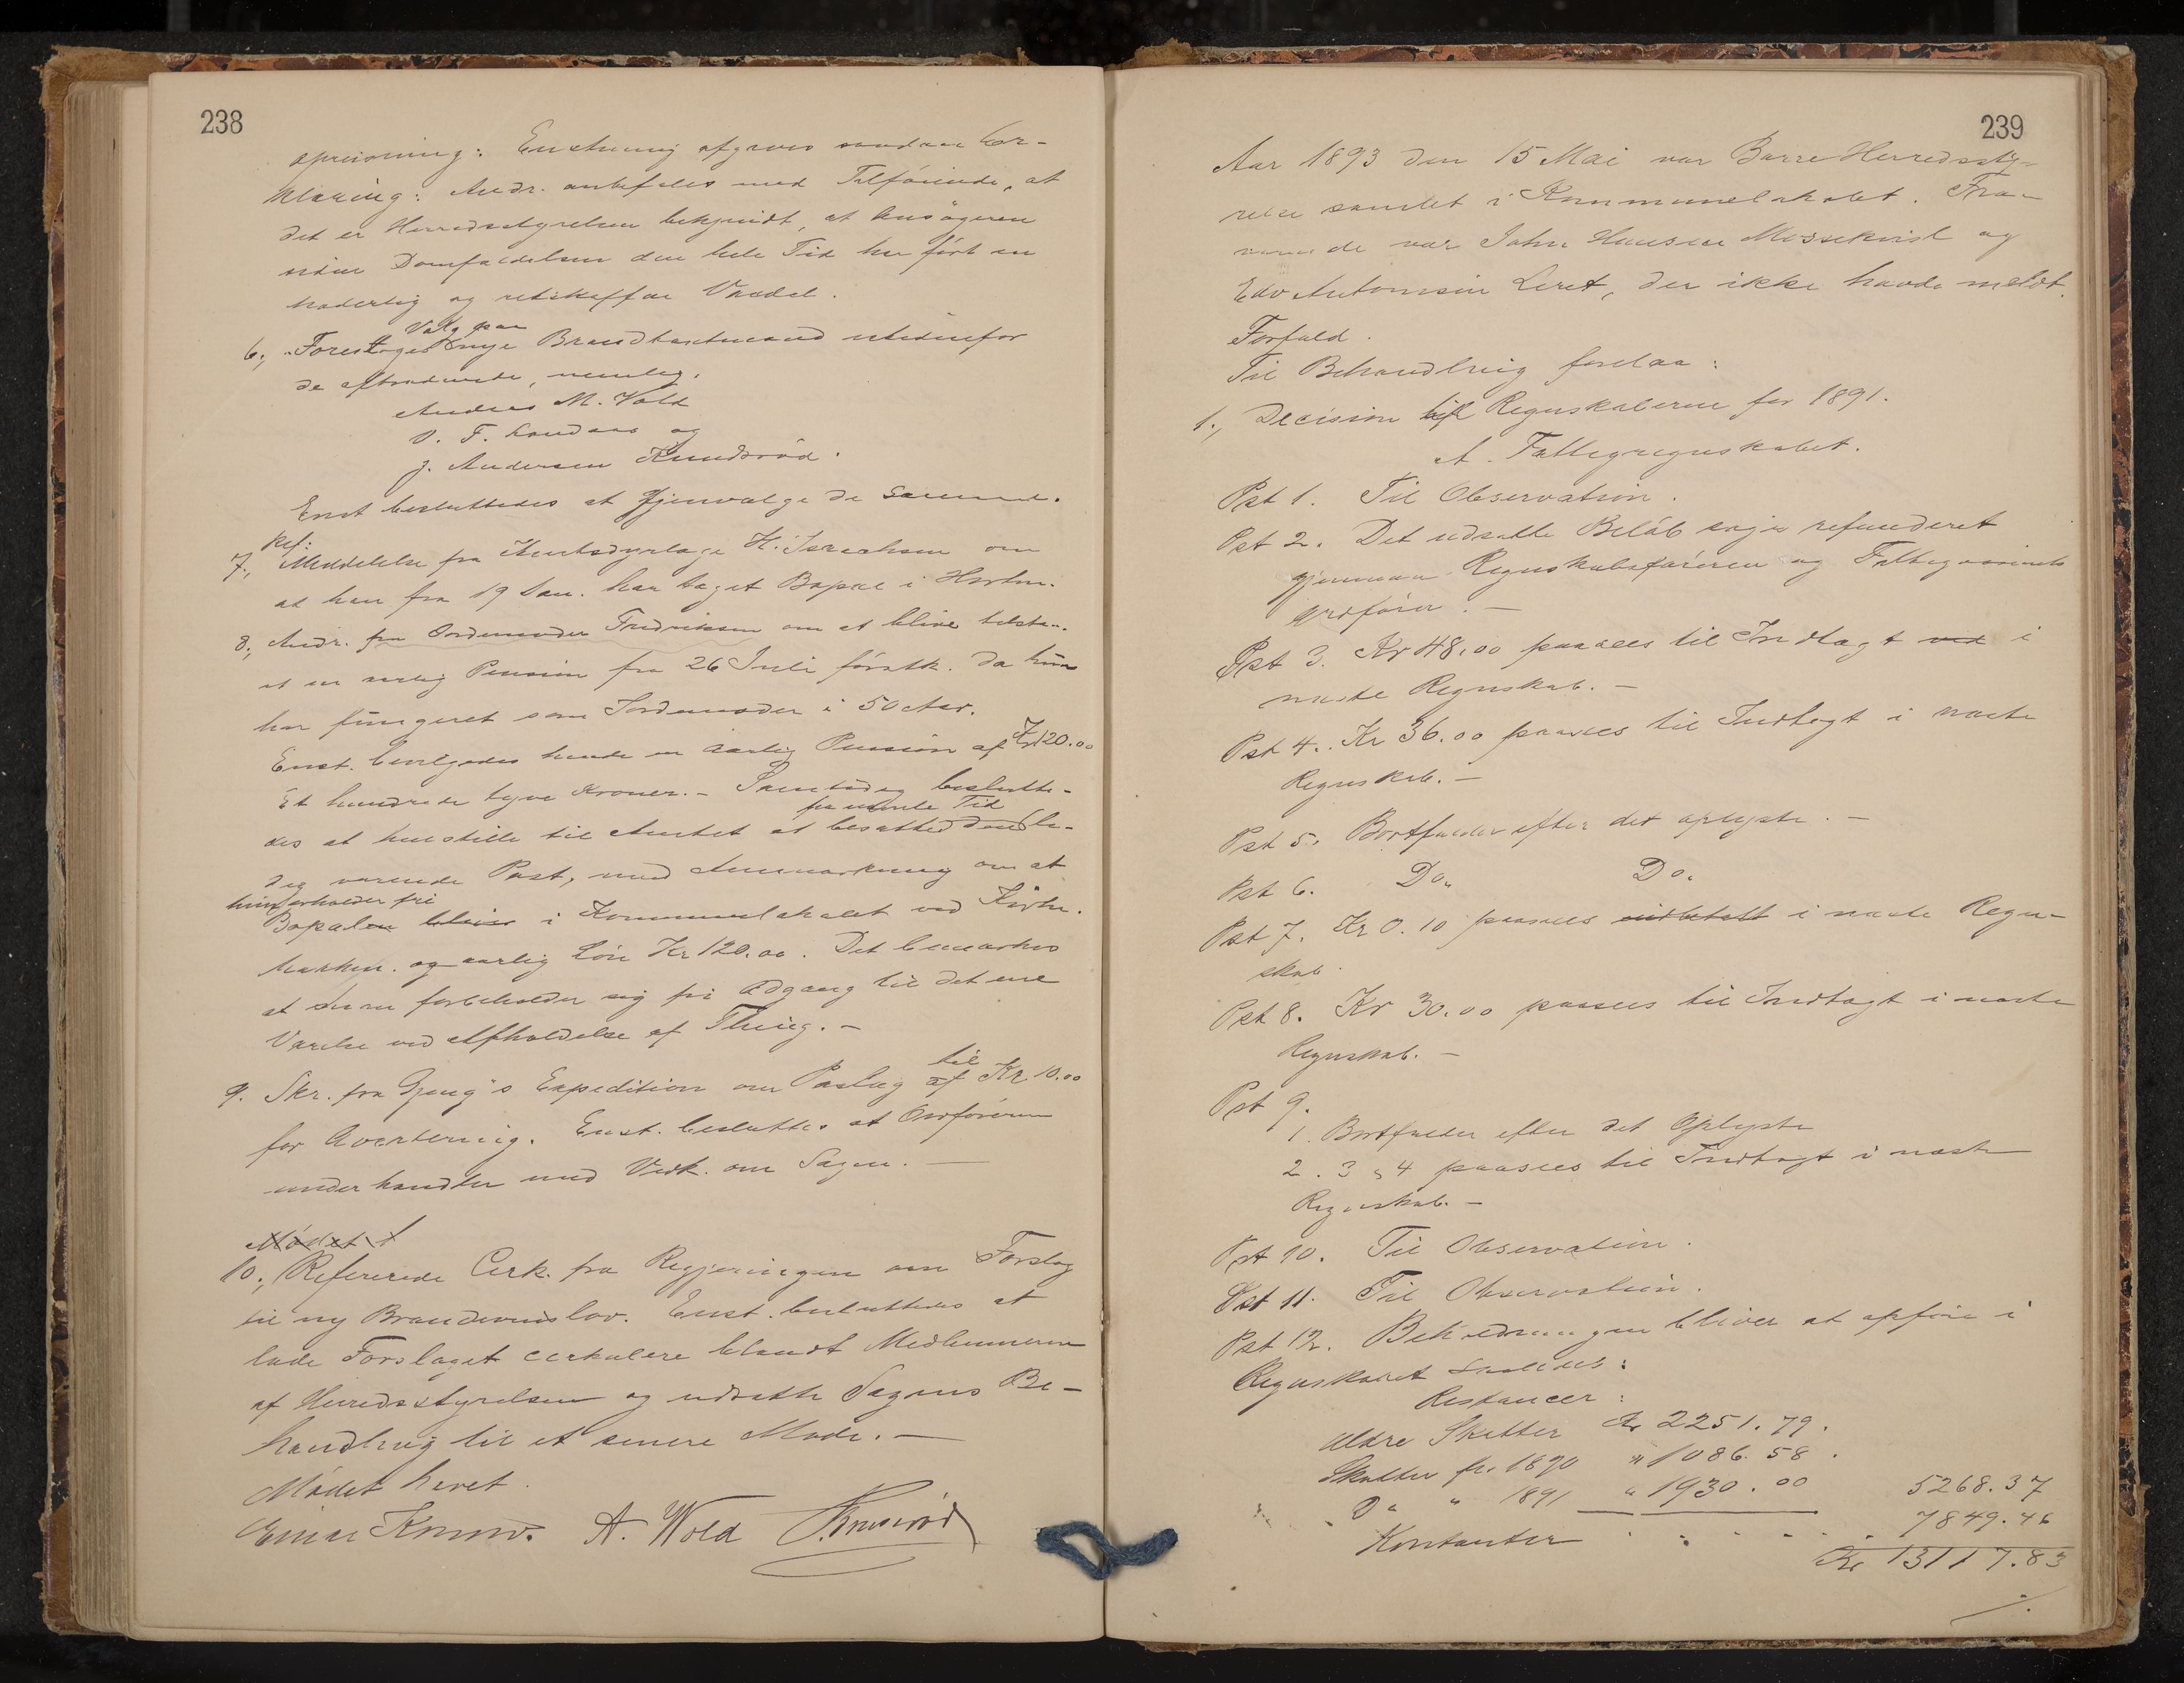 238
opreisning: Enstemmig afgaves saadan Er-
klæring: Andr. anbefales med Tilføiende, at
det er Herredsstyrelsen bekjendt, at Ansøgeren
siden Domfældelsen den hele Tid har ført en
hæderlig og retskaffen Vandel.
Valg paa
6., Foretoges nye Brandtaxtmænd istedenfor
de aftrædende, nemlig:
Anders M. Wold
O. F.
J. Andersen Knudsrød.
Enst besluttedes at gjenvælge de samme.
Ref:
7., Meddelelse fra Amtsdyrlæge H. Israchsen om
at han fra 19 Jan. har taget Bopæl i Horten.
8., Andr. fra Jordemoder Fredriksen om at blive tilstaa-
et en aarlig Pension fra 26 Juli førstk. da hun
har fungeret som Jordemoder i 50 Aar.
Enst. bevilgedes hende en aarlig Pension af Kr 120.00
Et hundrede tyve Kroner. - Samtidig beslutte-
fra samme Tid
des at henstille til Amtet at besætte den le-
dig værende Post, med Anmærkning om at
hun erholder fri
Bopælen bliver i Kommunelokalet ved Kirke-
bakken og aarlig Løn Kr 120.00. Det bemærkes
at man forbeholder sig fri Adgang til det ene
Værelse ved Afholdelse af Thing. -
9. Skr. fra Gjeng's Expedition om Paalæg af til Kr 10.00
for Avertering. Enst. besluttes at Ordføreren
underhandler med Vedk. om Sagen. -
Mødet
10., Refererede Cirk. fra Regjeringen om Forslag
til ny Brandvæsnslov. Enst. besluttedes at
lade Forslaget cirkulere blandt Medlemmerne
af Herredsstyrelsen og udsætte Sagens Be-
handling til et senere Møde. -
Mødet hævet.
A. Wold
239
Aar 1893 den 15 Mai var Borre Herredssty-
relse samlet i Kommunelokalet. Fra-
værende var Johan Hansen Mossekvist og
Edv Antonsen Leret, der ikke havde meldt
Forfald.
Til Behandling forelaa:
1., Decision til Regnskaberne for 1891.
A. Fattigregnskabet.
Pst 1. Til Observation.
Pst 2. Det udsatte Beløb søges refunderet
gjennem Regnskabsføreren og Fattigvæsenets
Ordfører. -
Pst 3. Kr 48.00 paasees til Indtægt ved i
næste Regnskab. -
Pst 4. Kr 36.00 paasees til Indtægt i næste
Regnskab. -
Pst 5. Bortfalder efter det oplyste. -
Pst 6. Do. Do.
Pst 7. Kr 0.10 paasees indbetalt i næste Regn-
skab.
Pst 8. Kr 30.00 paasees til Indtægt i næste
Regnskab. -
Pst 9.
1. Bortfalder efter det Oplyste
2. 3 & 4 paasees til Indtægt i næste
Regnskab. -
Pst 10. Til Observation.
Pst 11. Til Observation.
Pst 12. Beholdningen bliver at opføre i
Regnskabet saaledes:
Restancer:
Ældre Skatter Kr 2251.79.
Skatter for 1890 " 1086.58.
Do " 1891 " 1930.00 5268.37
Kontanter . . . . . 7849.46
Kr 13117.83